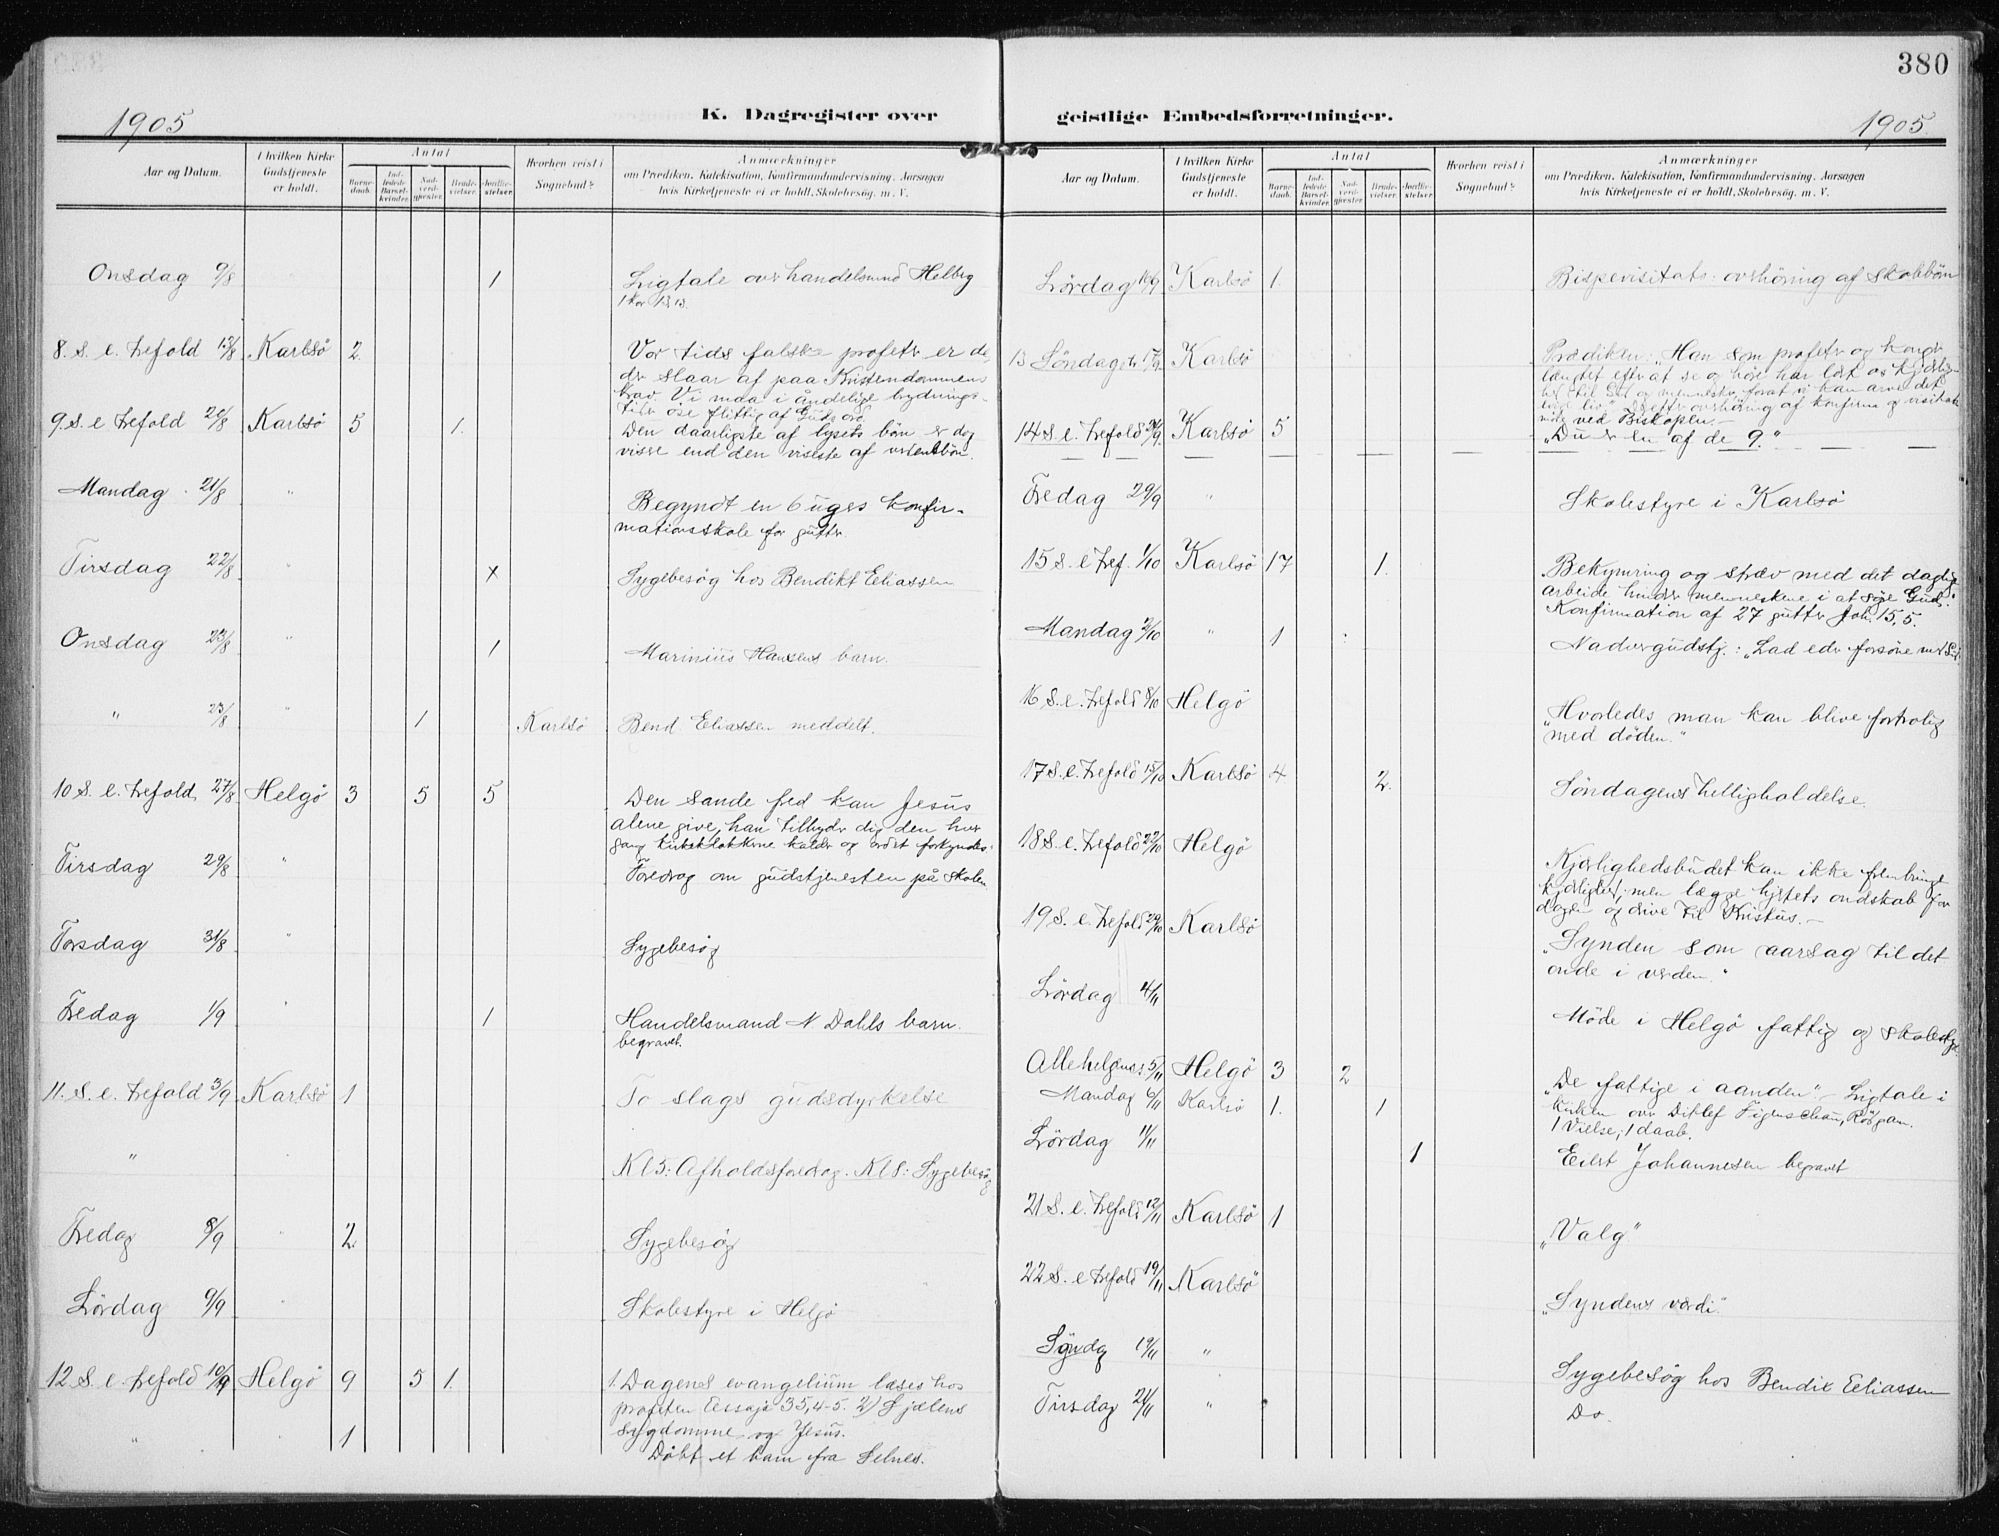 380
1905
K. Dagregister over
geistlige Embedsforretninger.
1905
Aar og Datum.
I hvilken Kirke Gudstjeneste er holdt.
Antal
Barnedaab.
Indledede Barselkvinder.
Nadverdgjester.
Brudevielser.
Jordfæstelser.
Hvorhen reist i Sognebud?
Anmærkninger
om Prædiken, Katekisation, Konfirmandundervisning. Aarsagen
hvis Kirketjeneste ei er holdt, Skolebesøg. m. V.
Onsdag 9/8 " 1 Ligtale over handelsmnd Helberg
1 Kor 13,13.
8. S. e. trefold 13/8 Karlsö 2 Vor tids falske profeter er de,
der slaar af paa Kristendommens
krav. Vi maa i åndelige brydnings-
tider öse flittig af Guds ord
9. S. e trefold 20/8 Karlsö 5 1. Den daarligste af lysets börn er dog
visere end den viseste af verdens börn.
Mandag 21/8 " Begyndt en 6 uges konfir-
mationsskole for gutter
Tirsdag 22/8 " x Sygebesøg hos Bendikt Eliassen
Onsdag 23/8 " 1 Marinius Hansens barn.
" 23/8 " 1 Karlsö Bend Eliassen meddelt.
10 S. e. trefold. 27/8 Helgö 3 5 5 Den sande fred kan Jesus
alene give, han tilbyder dig den hver
gang kirkeklokkerne kalder og ordet forkyndes.
Tirsdag 29/8 " Foredrag om gudstjenesten på Skolen
Torsdag 31/8 " Sygebesög
Fredag 1/9 " 1 Handelsmand N. Dahls barn.
begravet.
11. S. e. trefold 3/9 Karlsö 1 To slags gudsdyrkelse
" Kl 5: Afholdsforedrag. Kl 8: Sygebesög
Fredag 8/9 " 2. Sygebesög
Lördag 9/9 " Skolestyre i Helgö
12 S. e. trefold 10/9 Helgö 9 5 1. 1. Dagens evangelium læses hos
profeten Essaja 35,4-5. 2) Sjælens
" 1 sygdomme og Jesus.
Döbt et barn fra Selnes.
Aar og Datum.
I hvilken Kirke Gudstjeneste er holdt.
Antal
Barnedaab.
Indledede Barselkvinder.
Nadverdgjester.
Brudevielser.
Jordfæstelser.
Hvorhen reist i Sognebud?
Anmærkninger
om Prædiken, Katekisation, Konfirmandundervisning. Aarsagen
hvis Kirketjeneste ei er holdt, Skolebesøg. m. V.
Lördag 16/9 Karlsö 1. Bispevisitats: overhöring af skolebörn
13 Söndag e. tr. 17/9 Karlsö Prædiken: "Han som profeter og konger
længtet efter at se og höre har lært os kjærlig-
hed til Gud og mennesker, forat vi kan arve det
evige liv." Derefter overhöring af konfirm. og visitats
ved Biskopen.-
14 S. e. trefold 24/9 Karlsö 5 "Du er en af de 9."
Fredag 29/9 " Skolestyre i Karlsö
15 S. e tref. 1/10 Karlsö 17 1. Bekymring og stræv med det daglige
arbeide hindrer menneskene i at söge Gud.
Konfirmation af 27 gutter Joh. 15,5.
Mandag 2/10 " 1 Nadvergudstj.: "Lad eder forsone med Gud.
16 S. e. trefold 8/10 Helgö "Hvorledes man kan blive fortrolig
med döden."
17 S. e. trefold 15/10 Karlsö 4 2. Söndagens helligholdelse.
18 S. e. trefold 22/10 Helgö Kjærlighedsbudet kan ikke frembringe
kjærlighed, men lægge hjertets ondskab for
dagen og drive til Kristus.-
19 S. e. trefold 29/10 Karlsö "Synden som aarsag til det
onde i verden."
Lördag 4/11 Möde i Helgö fattig og skolestyre
Allehelgens 5/11 Helgö 3 2 "De fattige i aanden".- Ligtale i
Mandag 6/11 Karlsö 1. 1 kirken over Ditlef Figenschau,
1 Vielse, 1 daab.
Lördag 11/11 1 Eilert Johannesen begravet
21 S. e. trefold 12/11 Karlsö 1 "Valg"
22 S. e trefold 19/11 Karlsö "Syndens værdi".
Söndg 19/11 " Sygebesög hos Bendik Eliassen
Tirsdag 21/11 " Do.